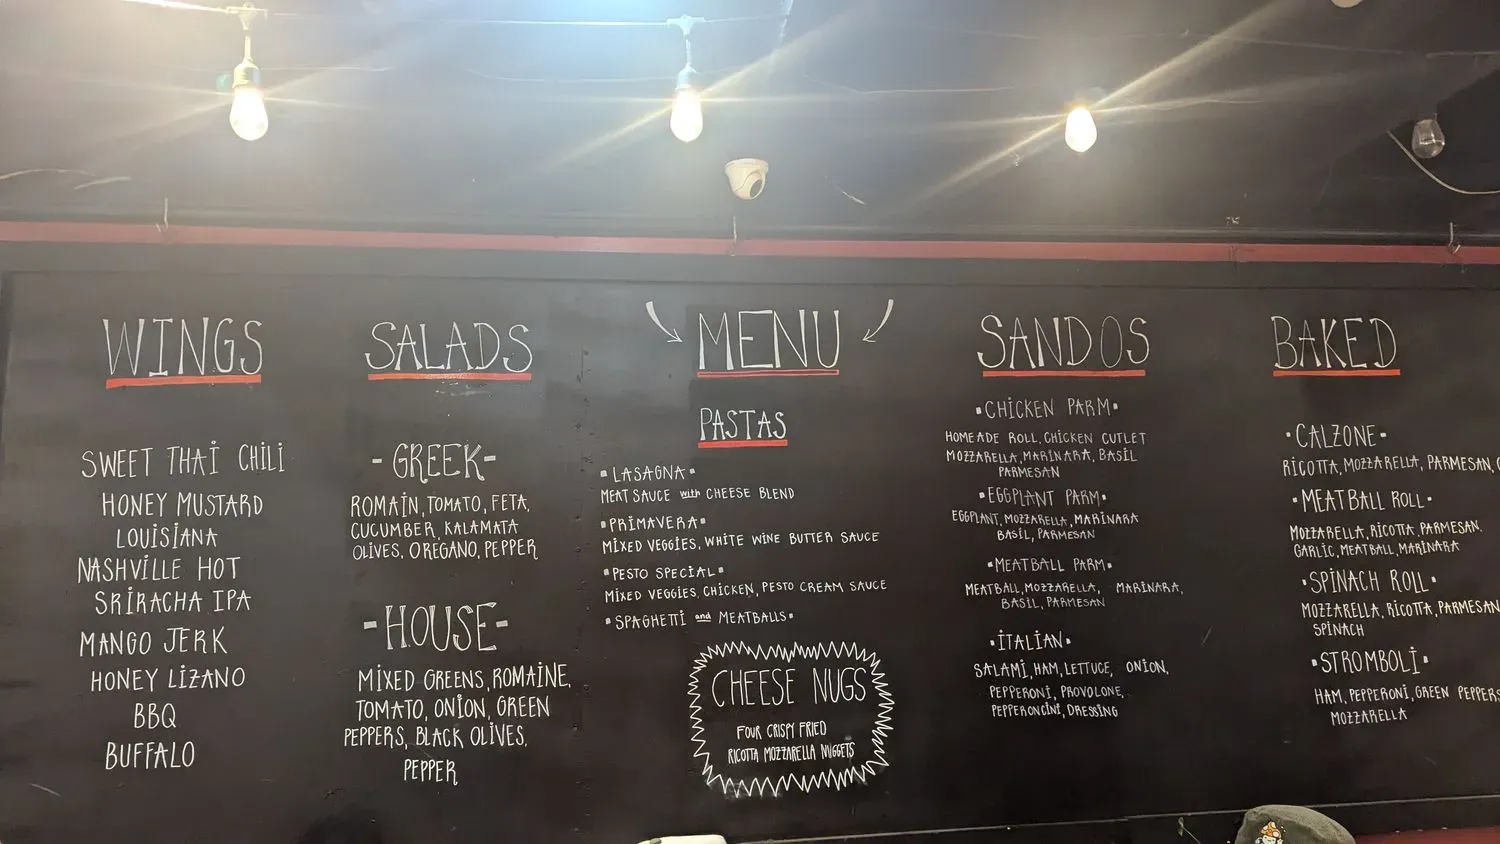 WINGS
SWEET THAI CHILI
HONEY MUSTARD
LOUISIANA
NASHVILLE HOT
SRIRACHA IPA
MANGO JERK
HONEY LIZANO
BBQ
BUFFALO
SALADS
-GREEK-
ROMAIN, TOMATO, FETA,
CUCUMBER, KALAMATA
OLIVES, OREGANO, PEPPER
-HOUSE-
MIXED GREENS, ROMAINE,
TOMATO, ONION, GREEN
PEPPERS, BLACK OLIVES,
PEPPER
MENU
PASTAS
•LASAGNA•
MEAT SAUCE with CHEESE BLEND
•PRIMAVERA•
MIXED VEGGIES, WHITE WINE BUTTER SAUCE
•PESTO SPECIAL•
MIXED VEGGIES, CHICKEN, PESTO CREAM SAUCE
•SPAGHETTI and MEATBALLS•
CHEESE NUGS
FOUR CRISPY FRIED
RICOTTA MOZZARELLA NUGGETS
SANDOS
•CHICKEN PARM•
HOMEADE ROLL, CHICKEN CUTLET
MOZZARELLA, MARINARA, BASIL
PARMESAN
•EGGPLANT PARM•
EGGPLANT, MOZZARELLA, MARINARA
BASIL, PARMESAN
•MEATBALL PARM•
MEATBALL, MOZZARELLA, MARINARA,
BASIL, PARMESAN
•ITALIAN•
SALAMI, HAM, LETTUCE, ONION,
PEPPERONI, PROVOLONE,
PEPPERONCINI, DRESSING
BAKED
•CALZONE•
RICOTTA, MOZZARELLA, PARMESAN,
•MEATBALL ROLL•
MOZZARELLA, RICOTTA, PARMESAN,
GARLIC, MEATBALL, MARINARA
•SPINACH ROLL•
MOZZARELLA, RICOTTA, PARMESAN
SPINACH
•STROMBOLI•
HAM, PEPPERONI, GREEN PEPPERS
MOZZARELLA